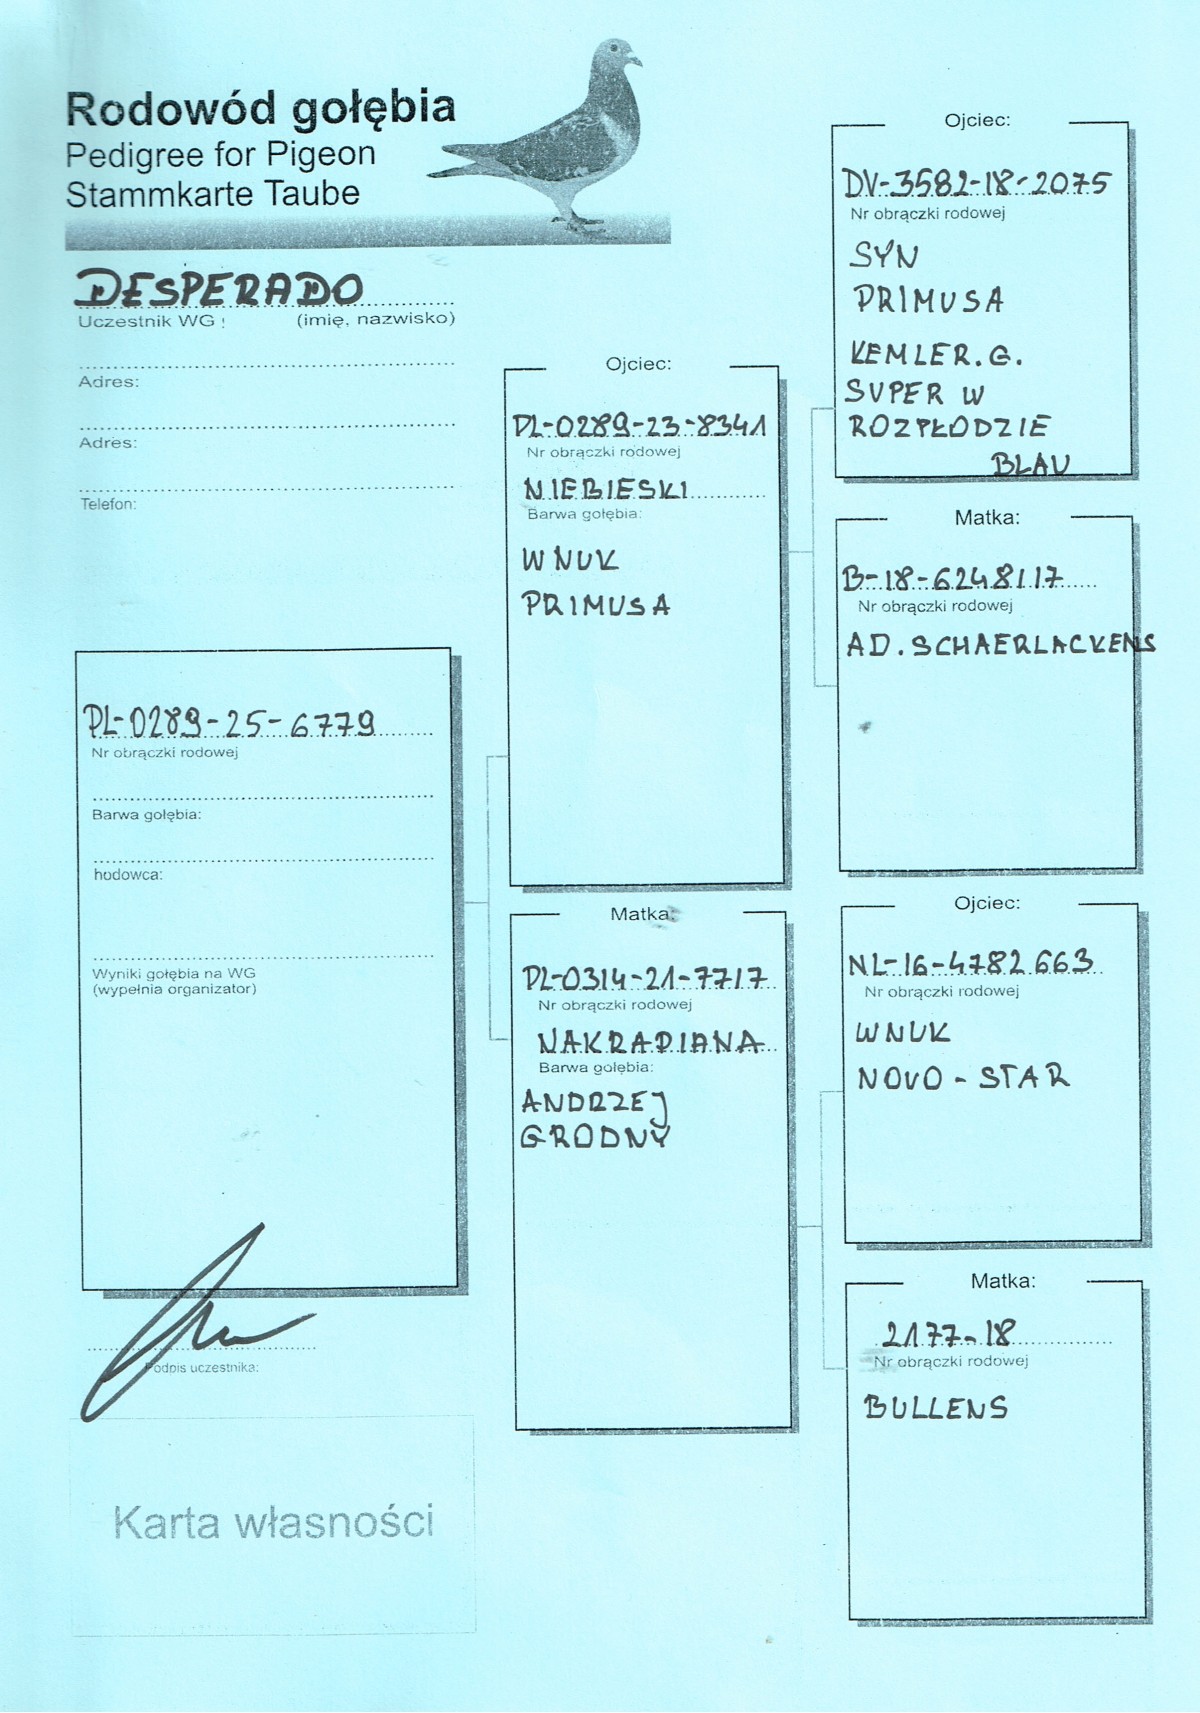 Rodowód gołębia
Pedigree for Pigeon
Stammkarte Taube
DESPERADO
Uczestnik WG : (imię, nazwisko)
Adres:
Adres:
Telefon:
PL-0289-25-6779
Nr obrączki rodowej
Barwa gołębia:
hodowca:
Wyniki gołębia na WG
(wypełnia organizator)
Podpis uczestnika:
Karta własności
Ojciec:
PL-0289-23-8341
Nr obrączki rodowej
NIEBIESKI
Barwa gołębia:
WNUK
PRIMUSA
Matka:
PL-0314-21-7717
Nr obrączki rodowej
NAKRAPIANA
Barwa gołębia:
ANDRZEJ
GRODNY
Ojciec:
DV-3582-18-2075
Nr obrączki rodowej
SYN
PRIMUSA
KEMLER.G.
SUPER W
ROZPŁODZIE
BLAU
Matka:
B-18-6248117
Nr obrączki rodowej
AD.SCHAERLACKENS
Ojciec:
NL-16-4782663
Nr obrączki rodowej
WNUK
NOVO-STAR
Matka:
2177-18
Nr obrączki rodowej
BULLENS